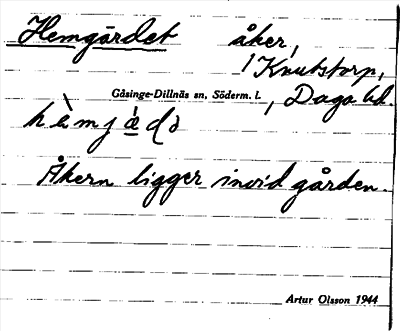 Hemgärdet åker,
1 Knutstorp,
Gåsinge-Dillnäs sn, Söderm. l., Daga hd.
hèmjæ̀də
Åkern ligger invid gården.
Artur Olsson 1944